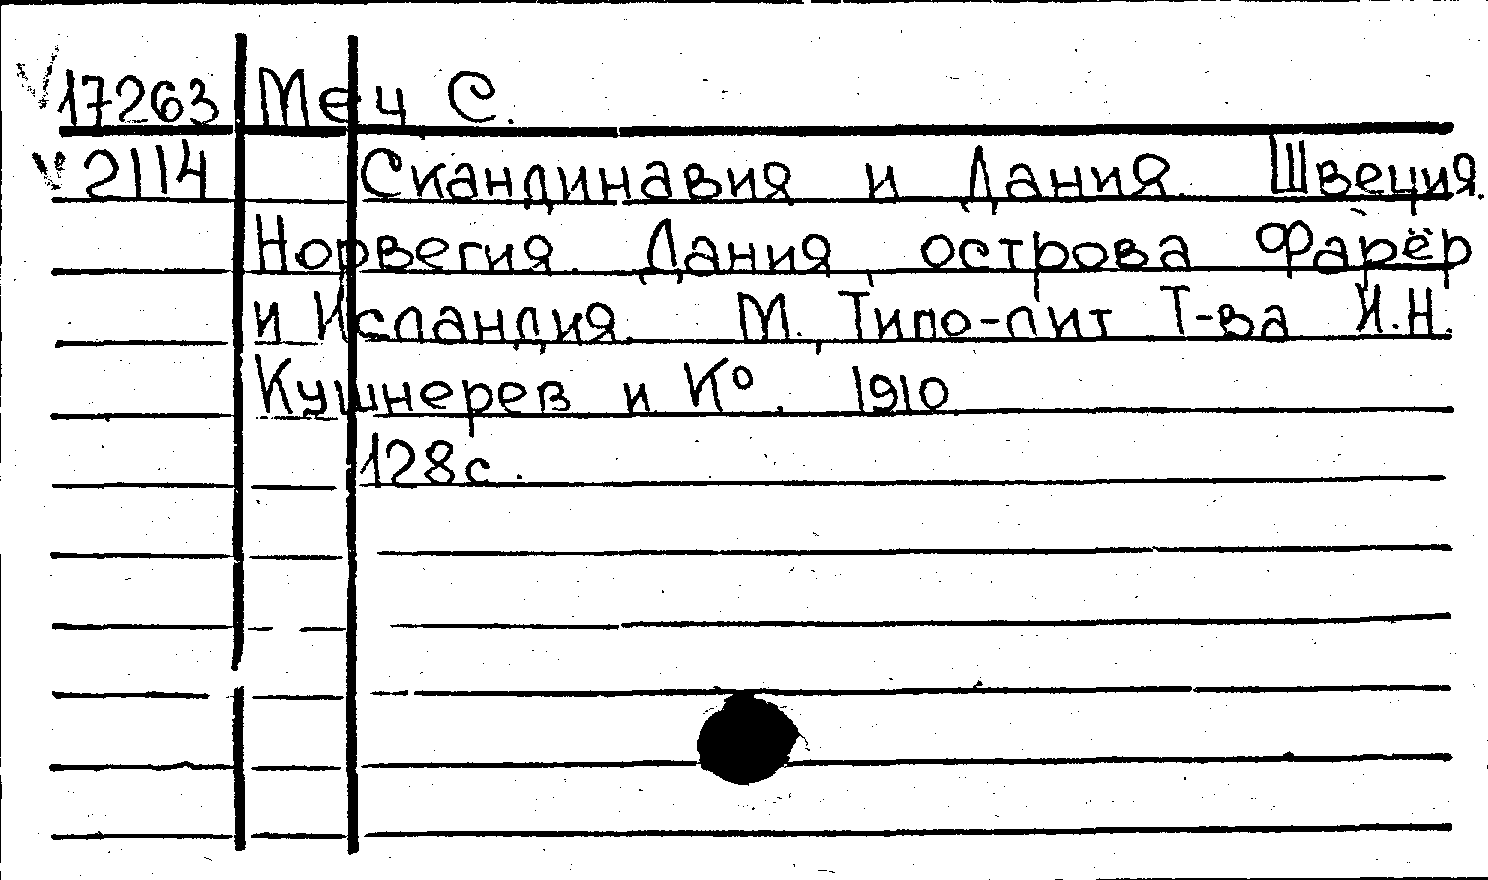 √17263 Меч С.
√2114 Скандинавия и Дания. Швеция.
Норвегия. Дания, острова Фарёр
и Исландия. М., Типо-лит Т-ва И.Н.
Кушнерев и К°. 1910
128с.